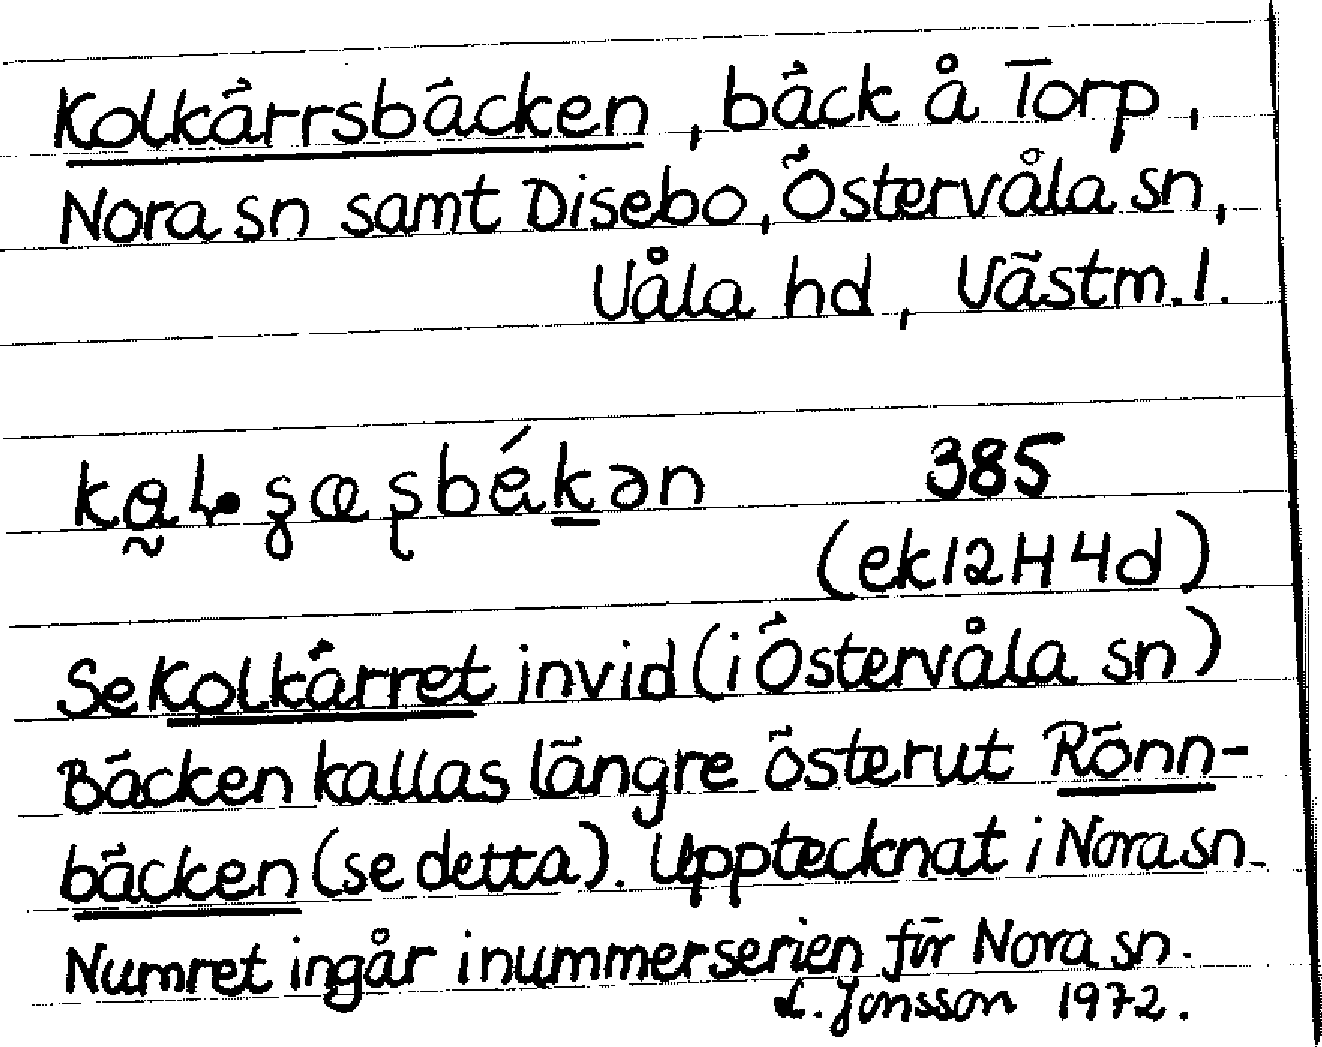 Kolkärrsbäcken, bäck å Torp,
Nora sn samt Disebo, Östervåla sn,
Våla hd, Västm. l.
385
(ek 12H 4d)
Se Kolkärret invid (i Östervåla sn)
Bäcken kallas längre österut Rönn-
bäcken (se detta). Upptecknat i Nora sn.
Numret ingår i nummerserien för Nora sn.
L. Jonsson 1972.